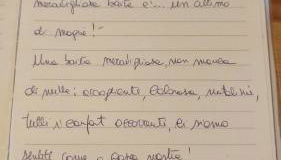 meravigliosa baita e'... un attimo
di magia!
Una baita meravigliosa, non manca
di nulla: accoglienti, calorosa,
tutti i confort occorrenti, ci siamo
sentiti come a casa nostra!